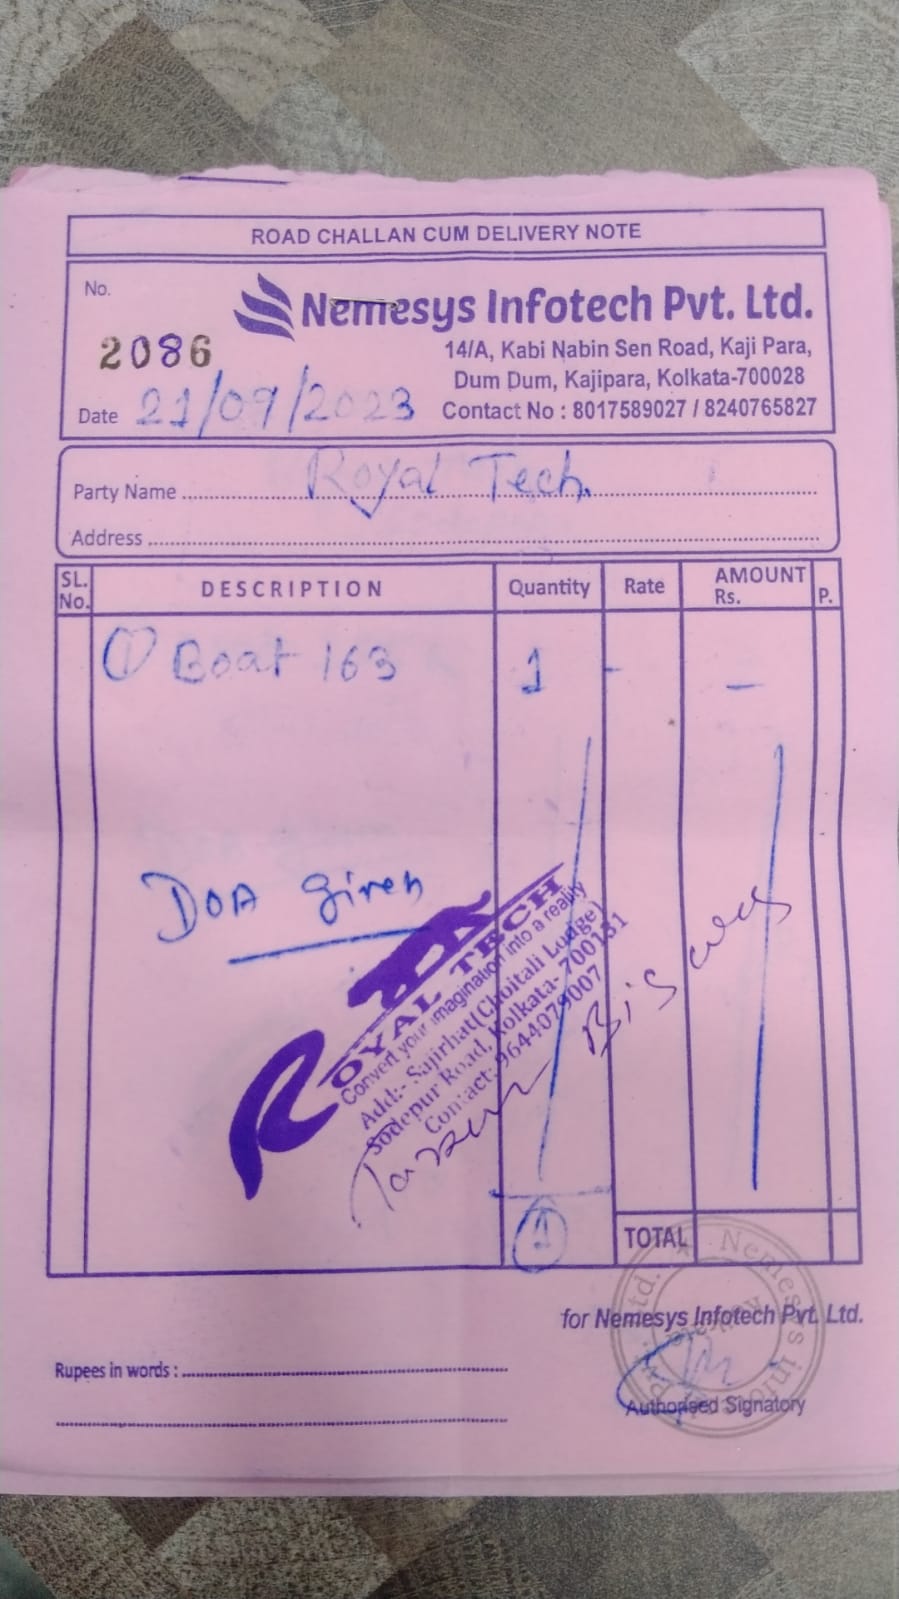 ROAD CHALLAN CUM DELIVERY NOTE
No.
2086
Nemesys Infotech Pvt. Ltd.
14/A, Kabi Nabin Sen Road, Kaji Para,
Dum Dum, Kajipara, Kolkata-700028
Contact No : 8017589027 / 8240765827
Date 21/09/2023
Party Name Royal Tech.
Address
SL. No. DESCRIPTION Quantity Rate AMOUNT Rs. P.
① Boat 163 1 - -
DOA given
ROYAL TECH
Convert your imagination into a reality
Add:- Sajirhat(Choitali Lodge)
Sodepur Road, Kolkata- 700131
Contact: 9644079007
Biswas
①
TOTAL
for Nemesys Infotech Pvt. Ltd.
Rupees in words :
Authorised Signatory